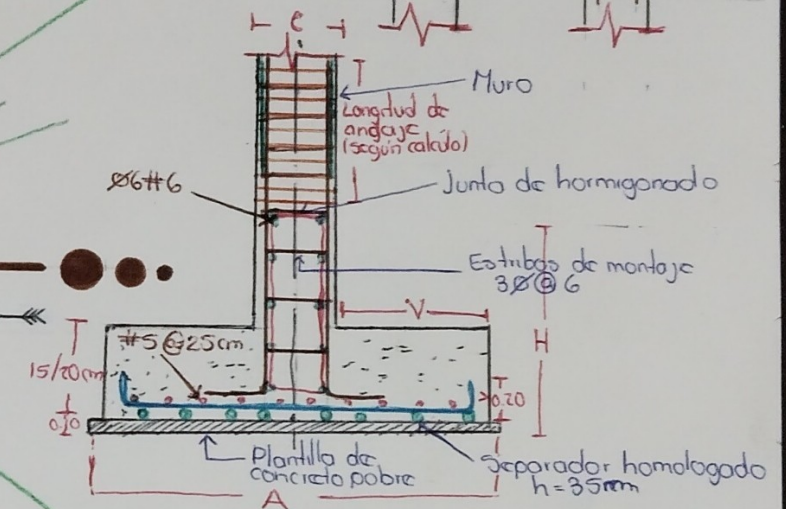 e
Muro
Longitud de
anclaje
(según calculo)
Ø6#6
Junta de hormigonado
Estribos de montaje
3Ø@6
V
H
#5@25cm
15/20cm
0.20
0.10
Plantilla de
concreto pobre
Separador homologado
h=35mm
A